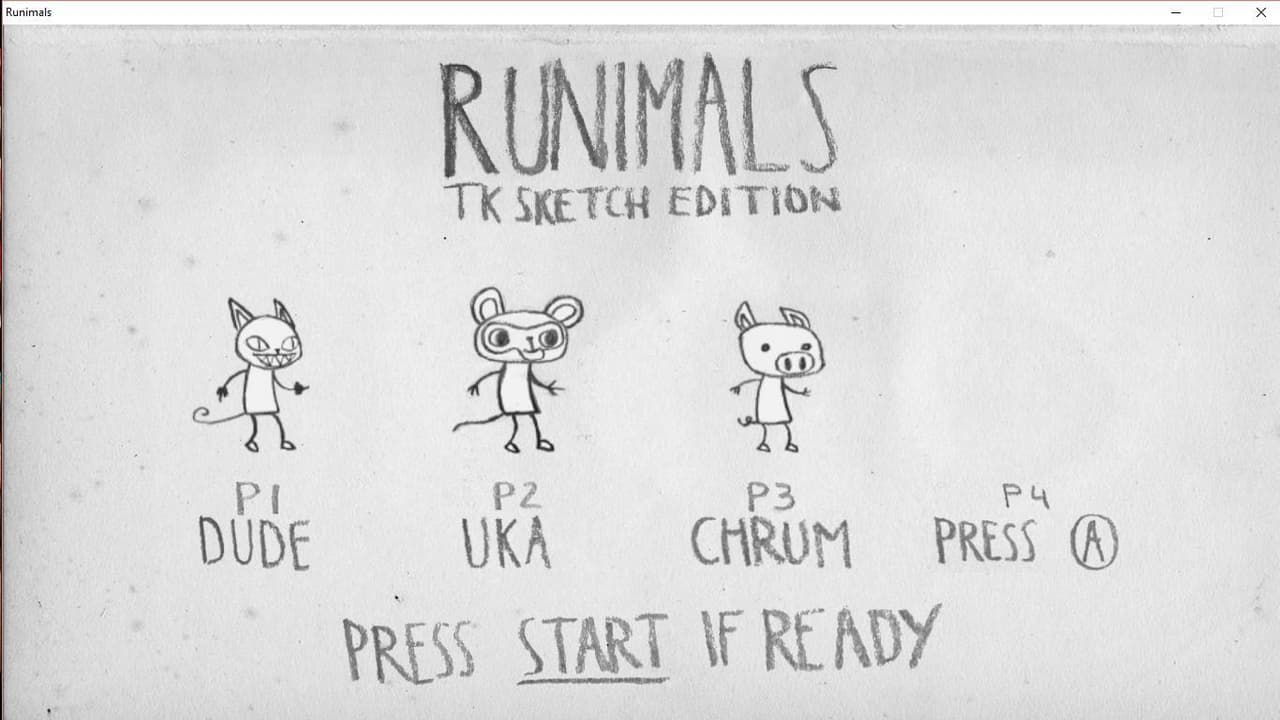 Runimals
RUNIMALS
TK SKETCH EDITION
P1
DUDE
P2
UKA
P3
CHRUM
P4
PRESS A
PRESS START IF READY